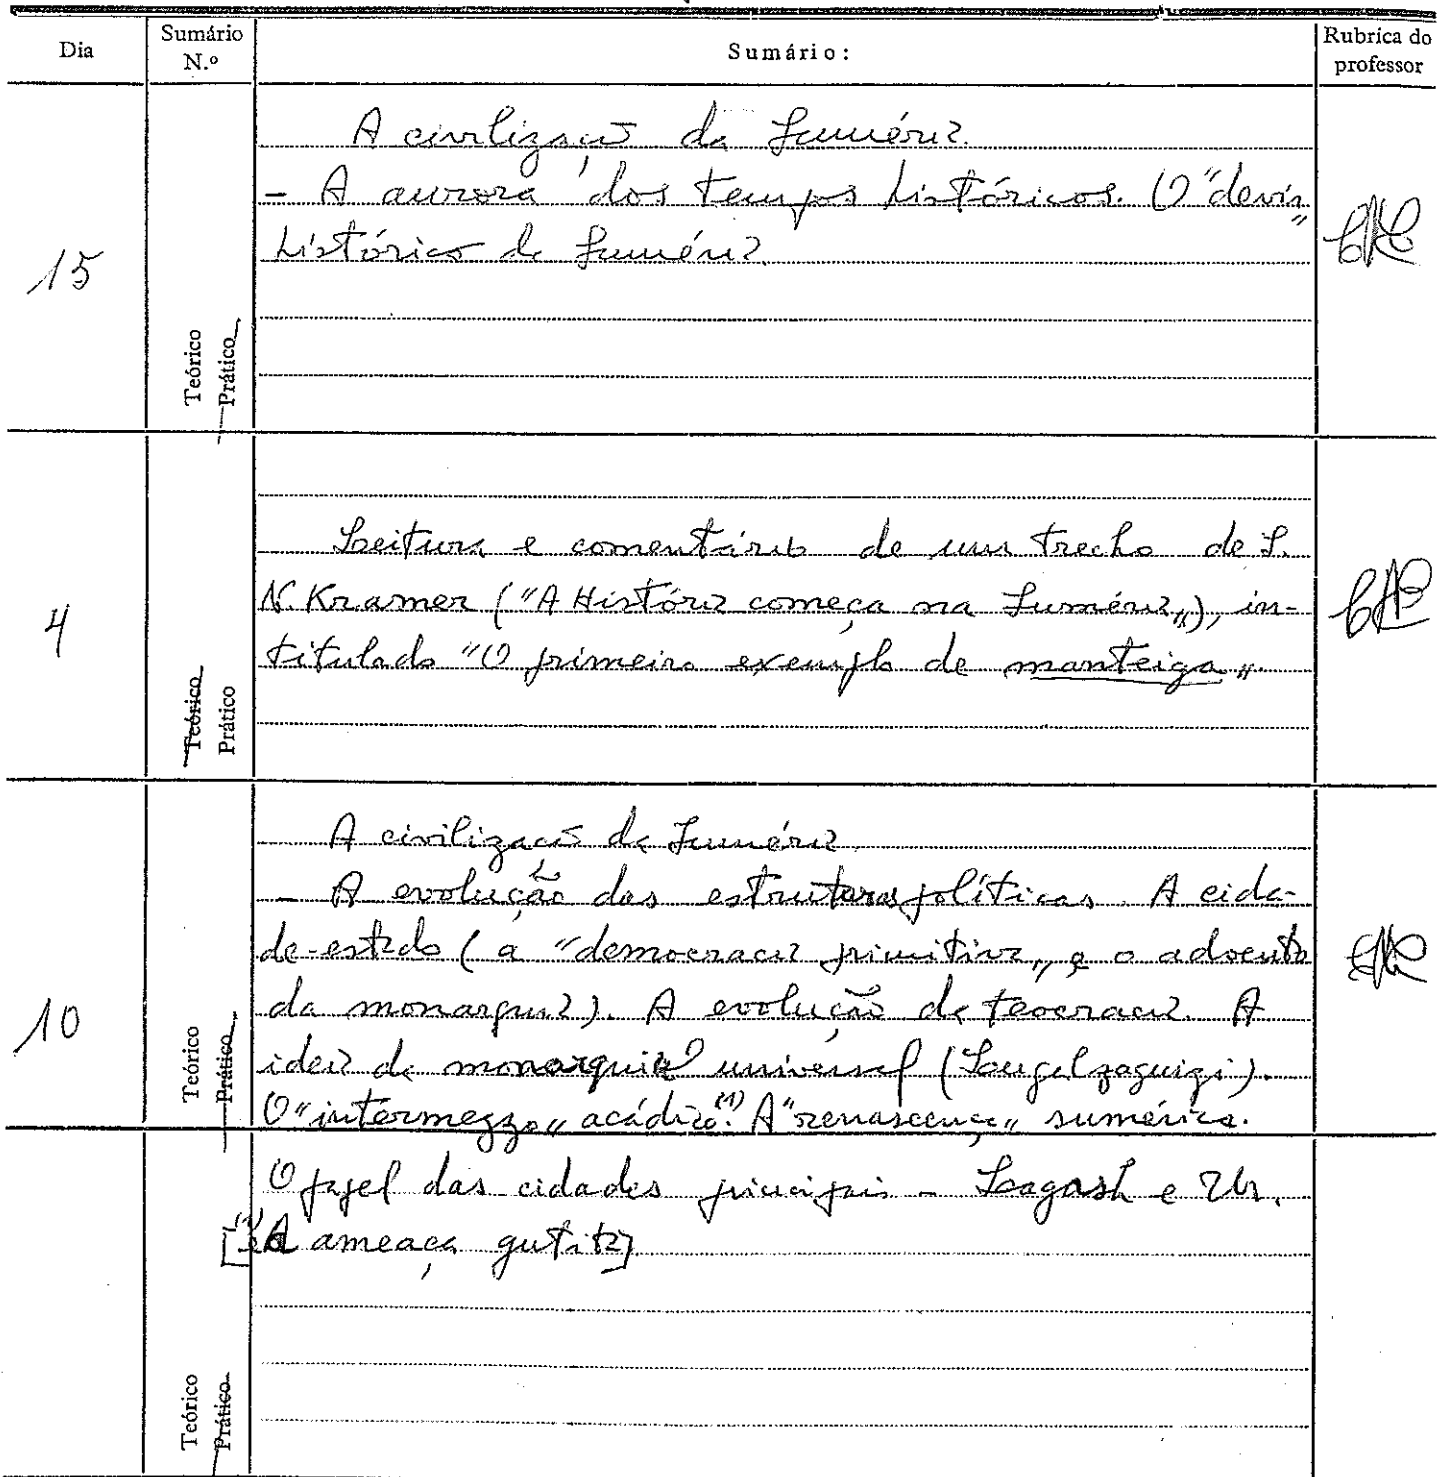 Dia
Sumário N.º
Sumário:
Rubrica do professor
15
Teórico
Prático
A civilização da Suméria.
- A aurora dos tempos históricos. O "devir"
histórico da Suméria.
4
Teórico
Prático
Leitura e comentário de um trecho de S.
N. Kramer ("A História começa na Suméria"), in-
titulado "O primeiro exemplo de manteiga".
10
Teórico
Prático
A civilização da Suméria
- A evolução das estruturas políticas. A cida-
de-estado (a "democracia primitiva" e o advento
da monarquia). A evolução da teocracia. A
ideia da monarquia universal (Lugalzaguizi).
O "intermezzo" acádico.(1) A "renascença" sumérica.
Teórico
Prático
O papel das cidades principais - Lagash e Ur.
[(1) e a ameaça gutita]